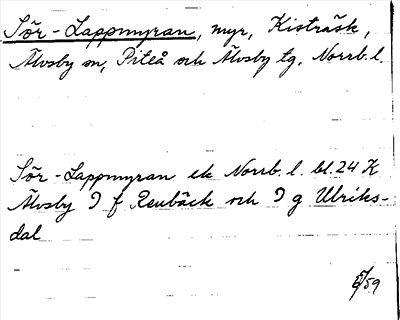 Sör-Lappmyran, myr, Kisträsk,
Älvsby sn, Piteå och Älvsby tg, Norrb. l.
Sör-Lappmyran ek Norrb. l. bl. 24 K
Älvsby I f Renbäck och I g Ulriks-
dal
/59